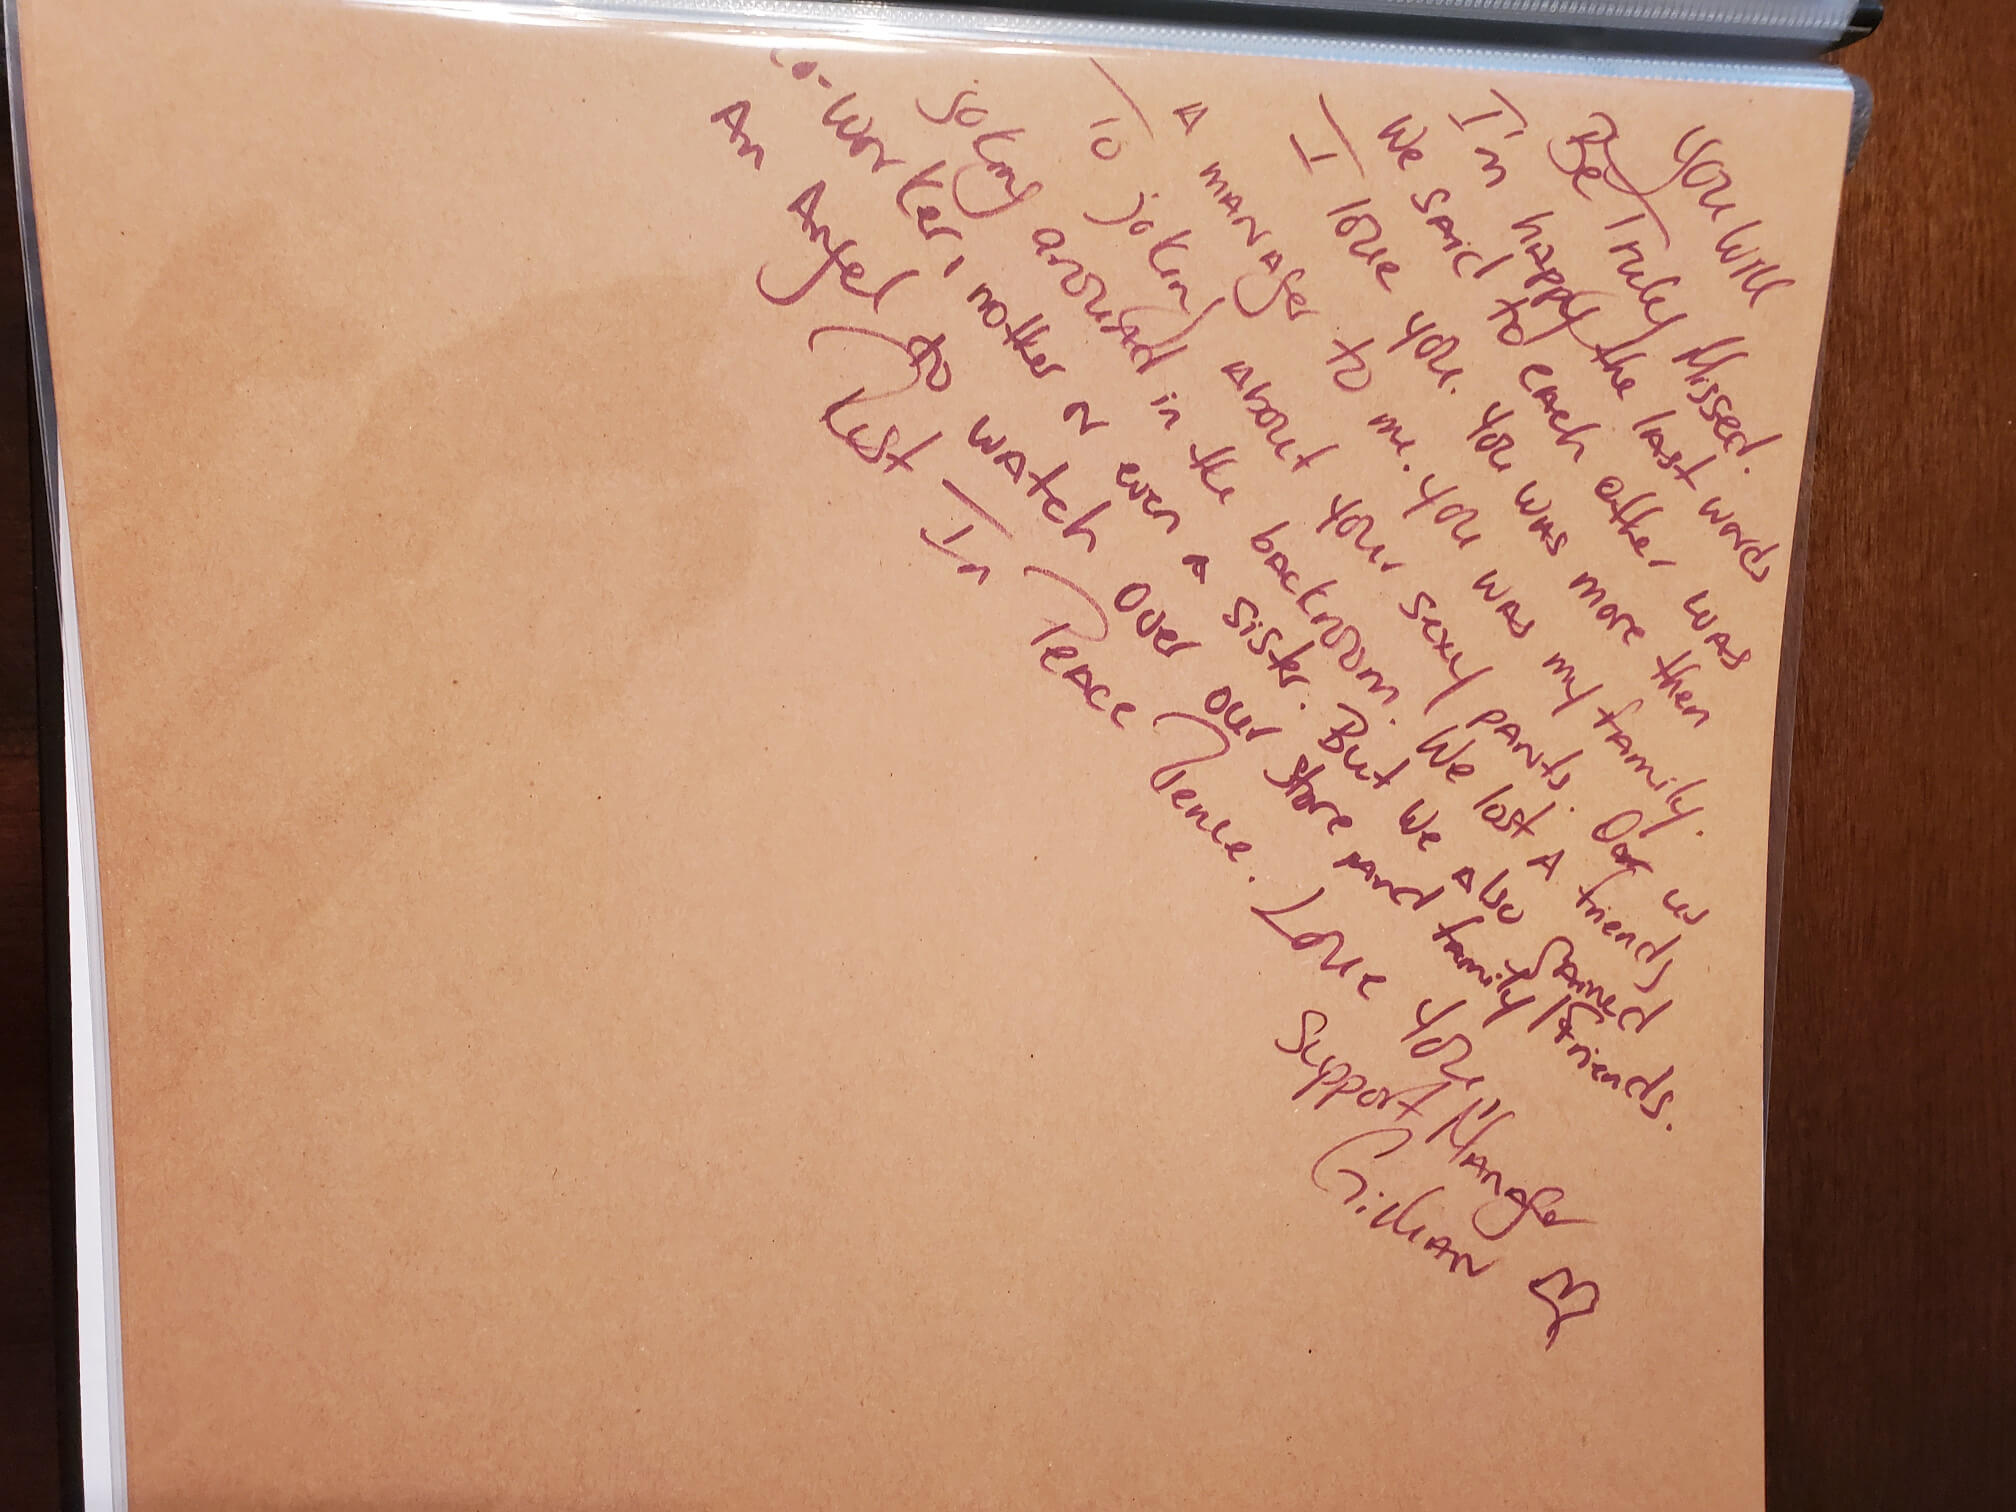 You Will
Be Truly Missed.
I'm happy the last words
We said to each other was
I love you. You was more then
A manager to me. You was my family.
To joking about your sexy pants. Our us
joking around in the backroom. We lost A friends
Co-worker, mother or even a sister. But we also Gained
An Angel to watch over our store and family/friends.
Rest In Peace Renee. Love you
Support Manager
Gillian